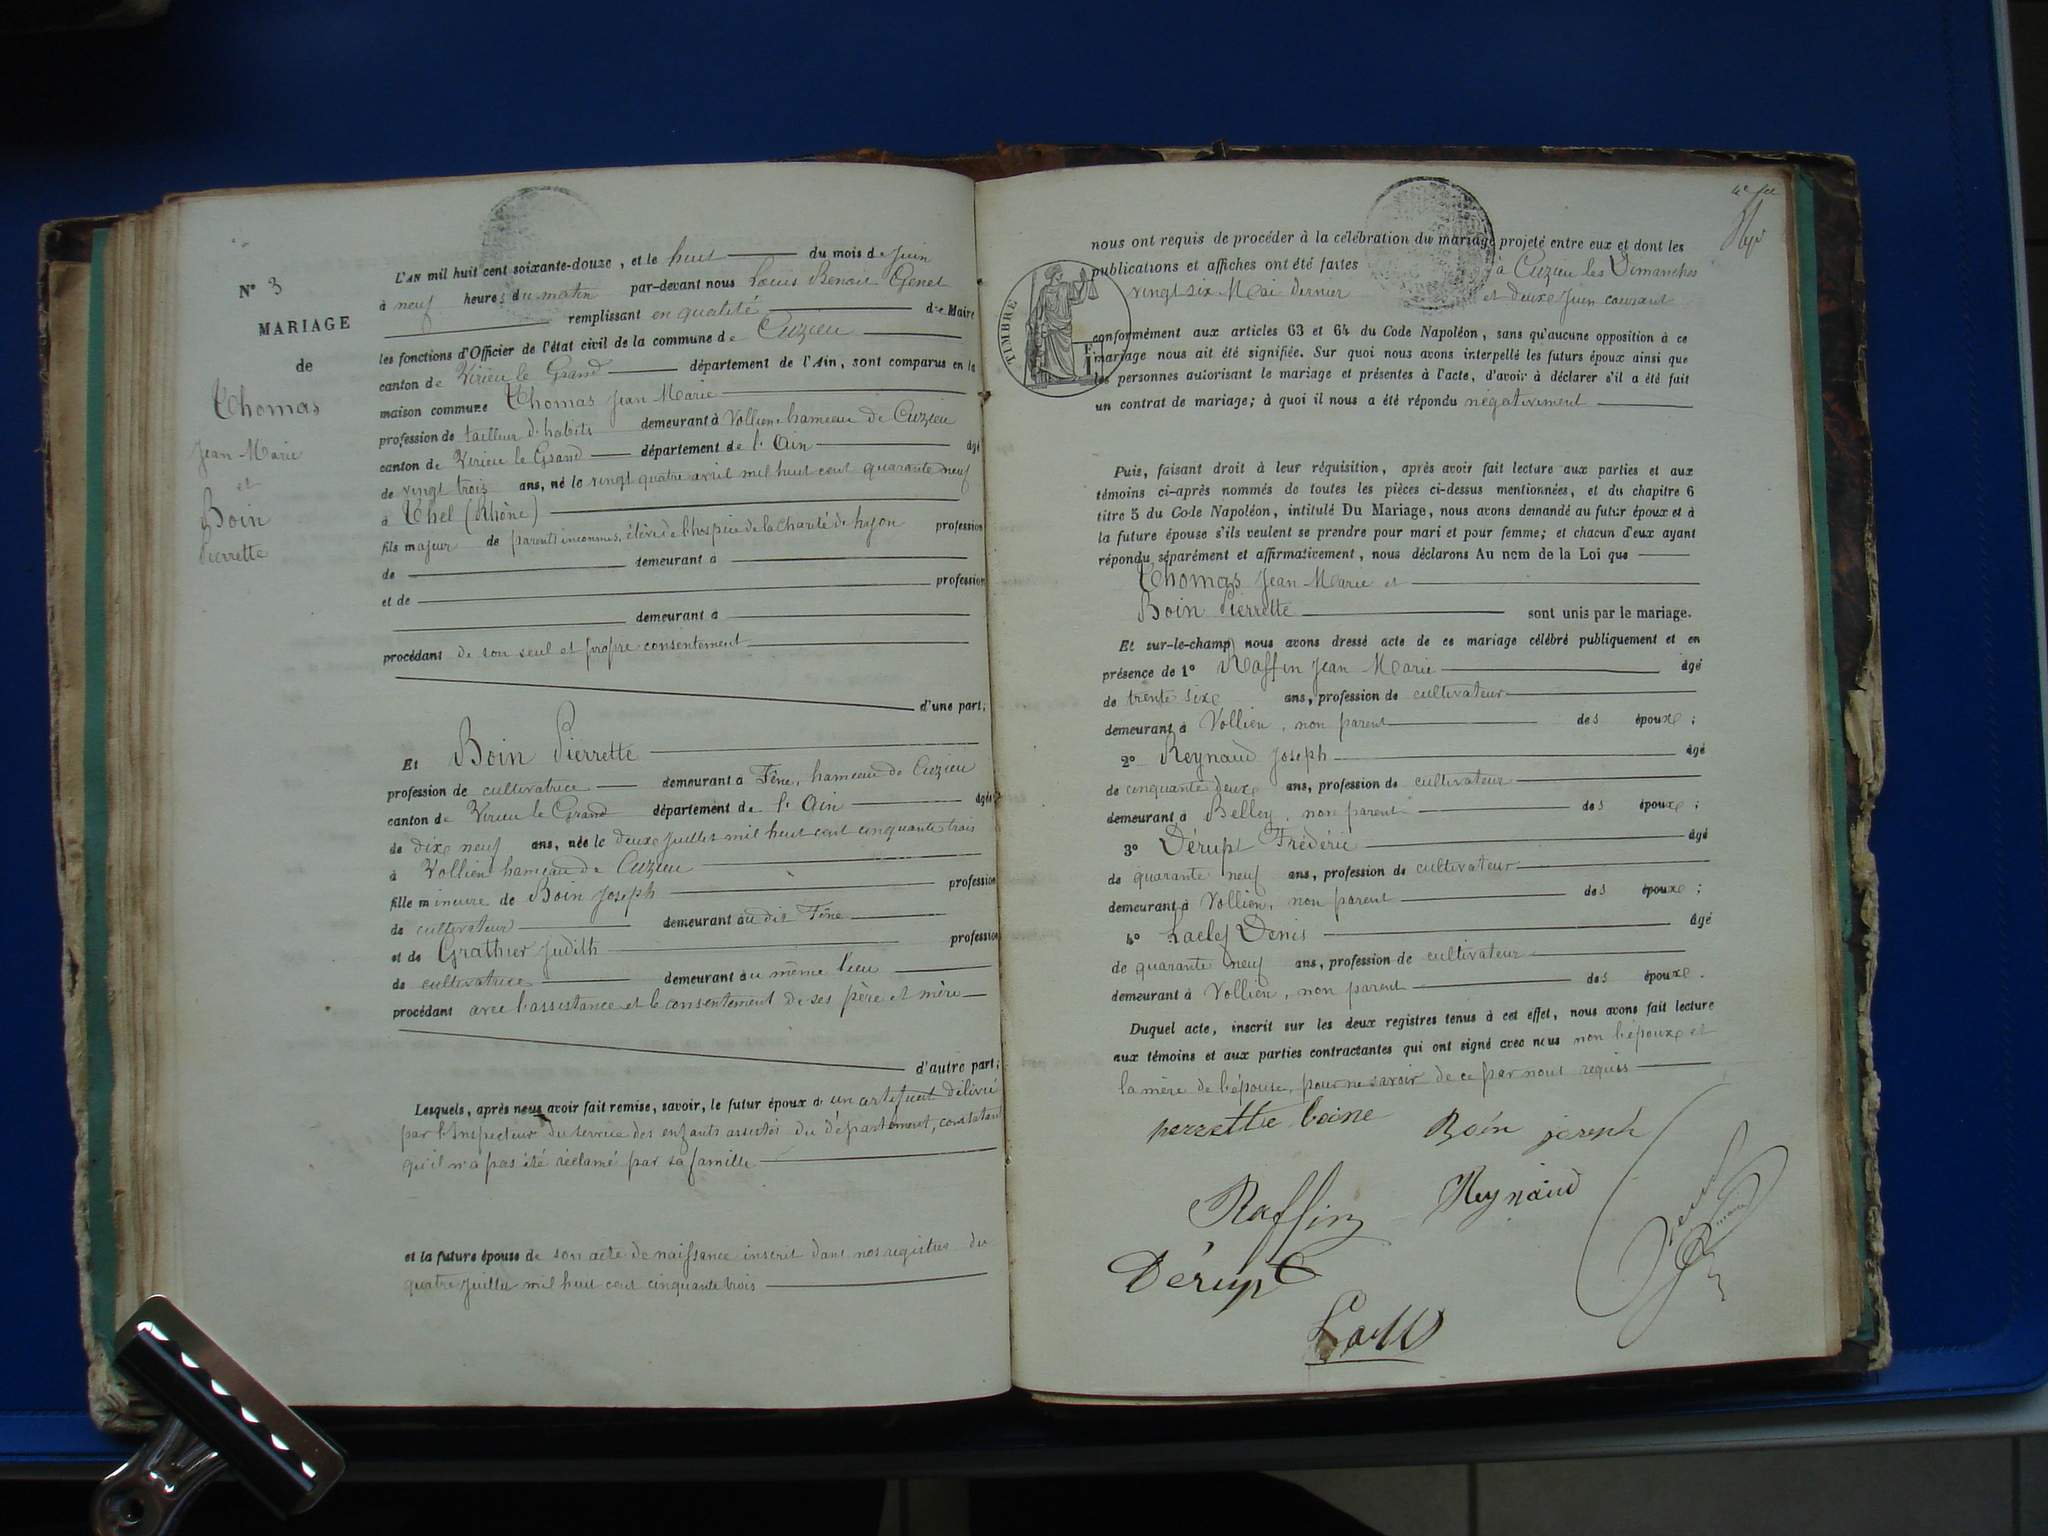 N° 3
MARIAGE
de
Thomas
Jean-Marie
et
Boin
Pierrette
L'AN mil huit cent soixante-douze, et le huit du mois de Juin
à neuf heures du matin par-devant nous Louis Benoit Genet
remplissant en qualité de Maire
les fonctions d'Officier de l'état civil de la commune de Cuzieu
canton de Virieu le Grand département de l'Ain, sont comparus en la
maison commune Thomas Jean Marie
profession de tailleur d'habits demeurant à Vollien hameau de Cuzieu
canton de Virieu le Grand département de l'Ain âgé
de vingt trois ans, né le vingt quatre avril mil huit cent quarante neuf
à Thel (Rhône)
fils majeur de parents inconnus, élève de l'hospice de la Charité de Lyon profession
de demeurant à
et de profession
demeurant à
procédant de son seul et propre consentement
d'une part;
Et Boin Pierrette
profession de cultivatrice demeurant à Fêne, hameau de Cuzieu
canton de Virieu le Grand département de l'Ain âgée
de dixe neuf ans, née le deuxe Juillet mil huit cent cinquante trois
à Vollien hameau de Cuzieu
fille mineure de Boin Joseph profession
de cultivateur demeurant au dit Fêne
et de Grathier Judith profession
de cultivatrice demeurant au même lieu
procédant avec l'assistance et le consentement de ses père et mère
d'autre part;
Lesquels, après nous avoir fait remise, savoir, le futur époux d'un certificat délivré
par l'Inspecteur du service des enfants assistés du département, constatant
qu'il n'a pas été réclamé par sa famille
et la future épouse de son acte de naissance inscrit dans nos registres du
quatre Juillet mil huit cent cinquante trois
nous ont requis de procéder à la célébration du mariage projeté entre eux et dont les
publications et affiches ont été faites à Cuzieu les Dimanches
vingt six Mai dernier et deuxe Juin courant
TIMBRE
conformément aux articles 63 et 64 du Code Napoléon, sans qu'aucune opposition à ce
mariage nous ait été signifiée. Sur quoi nous avons interpellé les futurs époux ainsi que
les personnes autorisant le mariage et présentes à l'acte, d'avoir à déclarer s'il a été fait
un contrat de mariage; à quoi il nous a été répondu négativement
Puis, faisant droit à leur réquisition, après avoir fait lecture aux parties et aux
témoins ci-après nommés de toutes les pièces ci-dessus mentionnées, et du chapitre 6
titre 5 du Code Napoléon, intitulé Du Mariage, nous avons demandé au futur époux et à
la future épouse s'ils veulent se prendre pour mari et pour femme; et chacun d'eux ayant
répondu séparément et affirmativement, nous déclarons Au nom de la Loi que
Thomas Jean-Marie et
Boin Pierrette sont unis par le mariage.
Et sur-le-champ nous avons dressé acte de ce mariage célébré publiquement et en
présence de 1° Raffin Jean Marie âgé
de trente sixe ans, profession de cultivateur
demeurant à Vollien, non parent des épouxe;
2° Reynaud Joseph âgé
de cinquante deuxe ans, profession de cultivateur
demeurant à Belley, non parent des épouxe;
3° Dérupt Frédéric âgé
de quarante neuf ans, profession de cultivateur
demeurant à Vollien, non parent des épouxe;
4° Denis âgé
de quarante neuf ans, profession de cultivateur
demeurant à Vollien, non parent des épouxe.
Duquel acte, inscrit sur les deux registres tenus à cet effet, nous avons fait lecture
aux témoins et aux parties contractantes qui ont signé avec nous non l'épouxe et
la mère de l'épouse, pour ne savoir de ce par nous requis
perrette boine Boin joseph
Raffin Reynaud
Dérupt